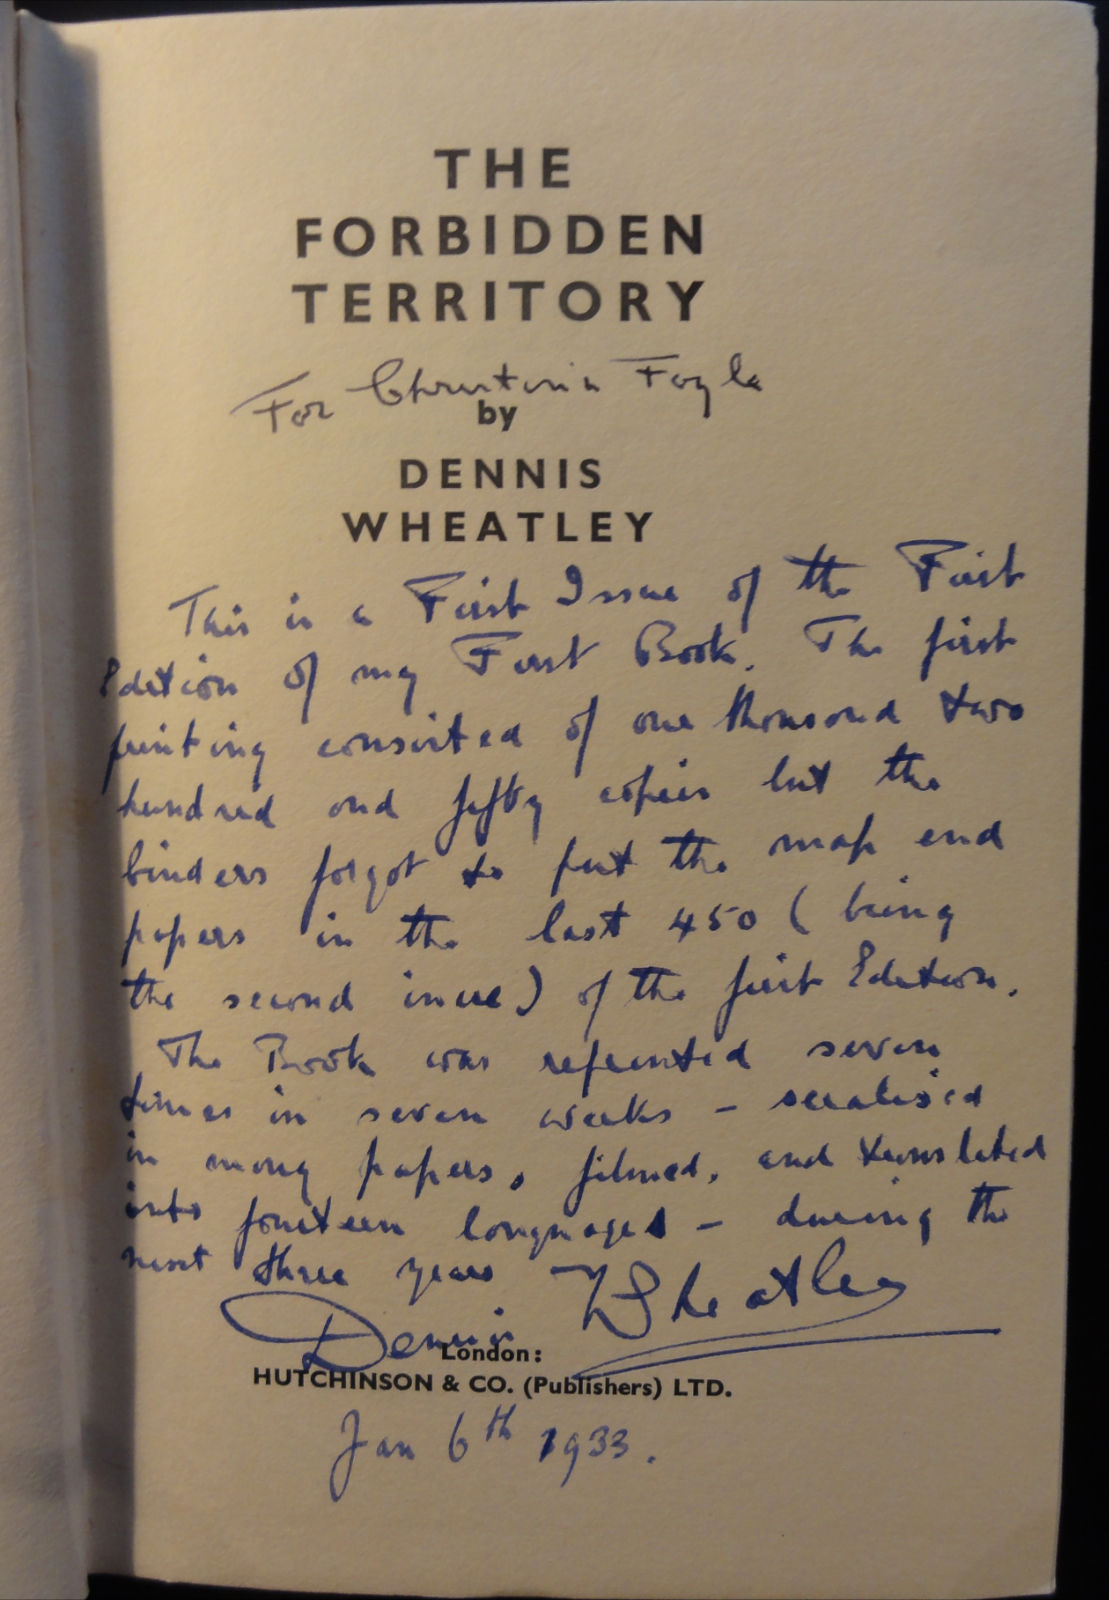 THE
FORBIDDEN
TERRITORY
For Christina Foyle
by
DENNIS
WHEATLEY
This is a First Issue of the First
Edition of my First Book. The first
printing consisted of one thousand two
hundred and fifty copies but the
binders forgot to put the map end
papers in the last 450 (being
the second issue) of the first Edition.
The Book was reprinted seven
times in seven weeks – serialised
in many papers, filmed, and translated
into fourteen languages – during the
next three years
Dennis Wheatley
London:
HUTCHINSON & CO. (Publishers) LTD.
Jan 6th 1933.